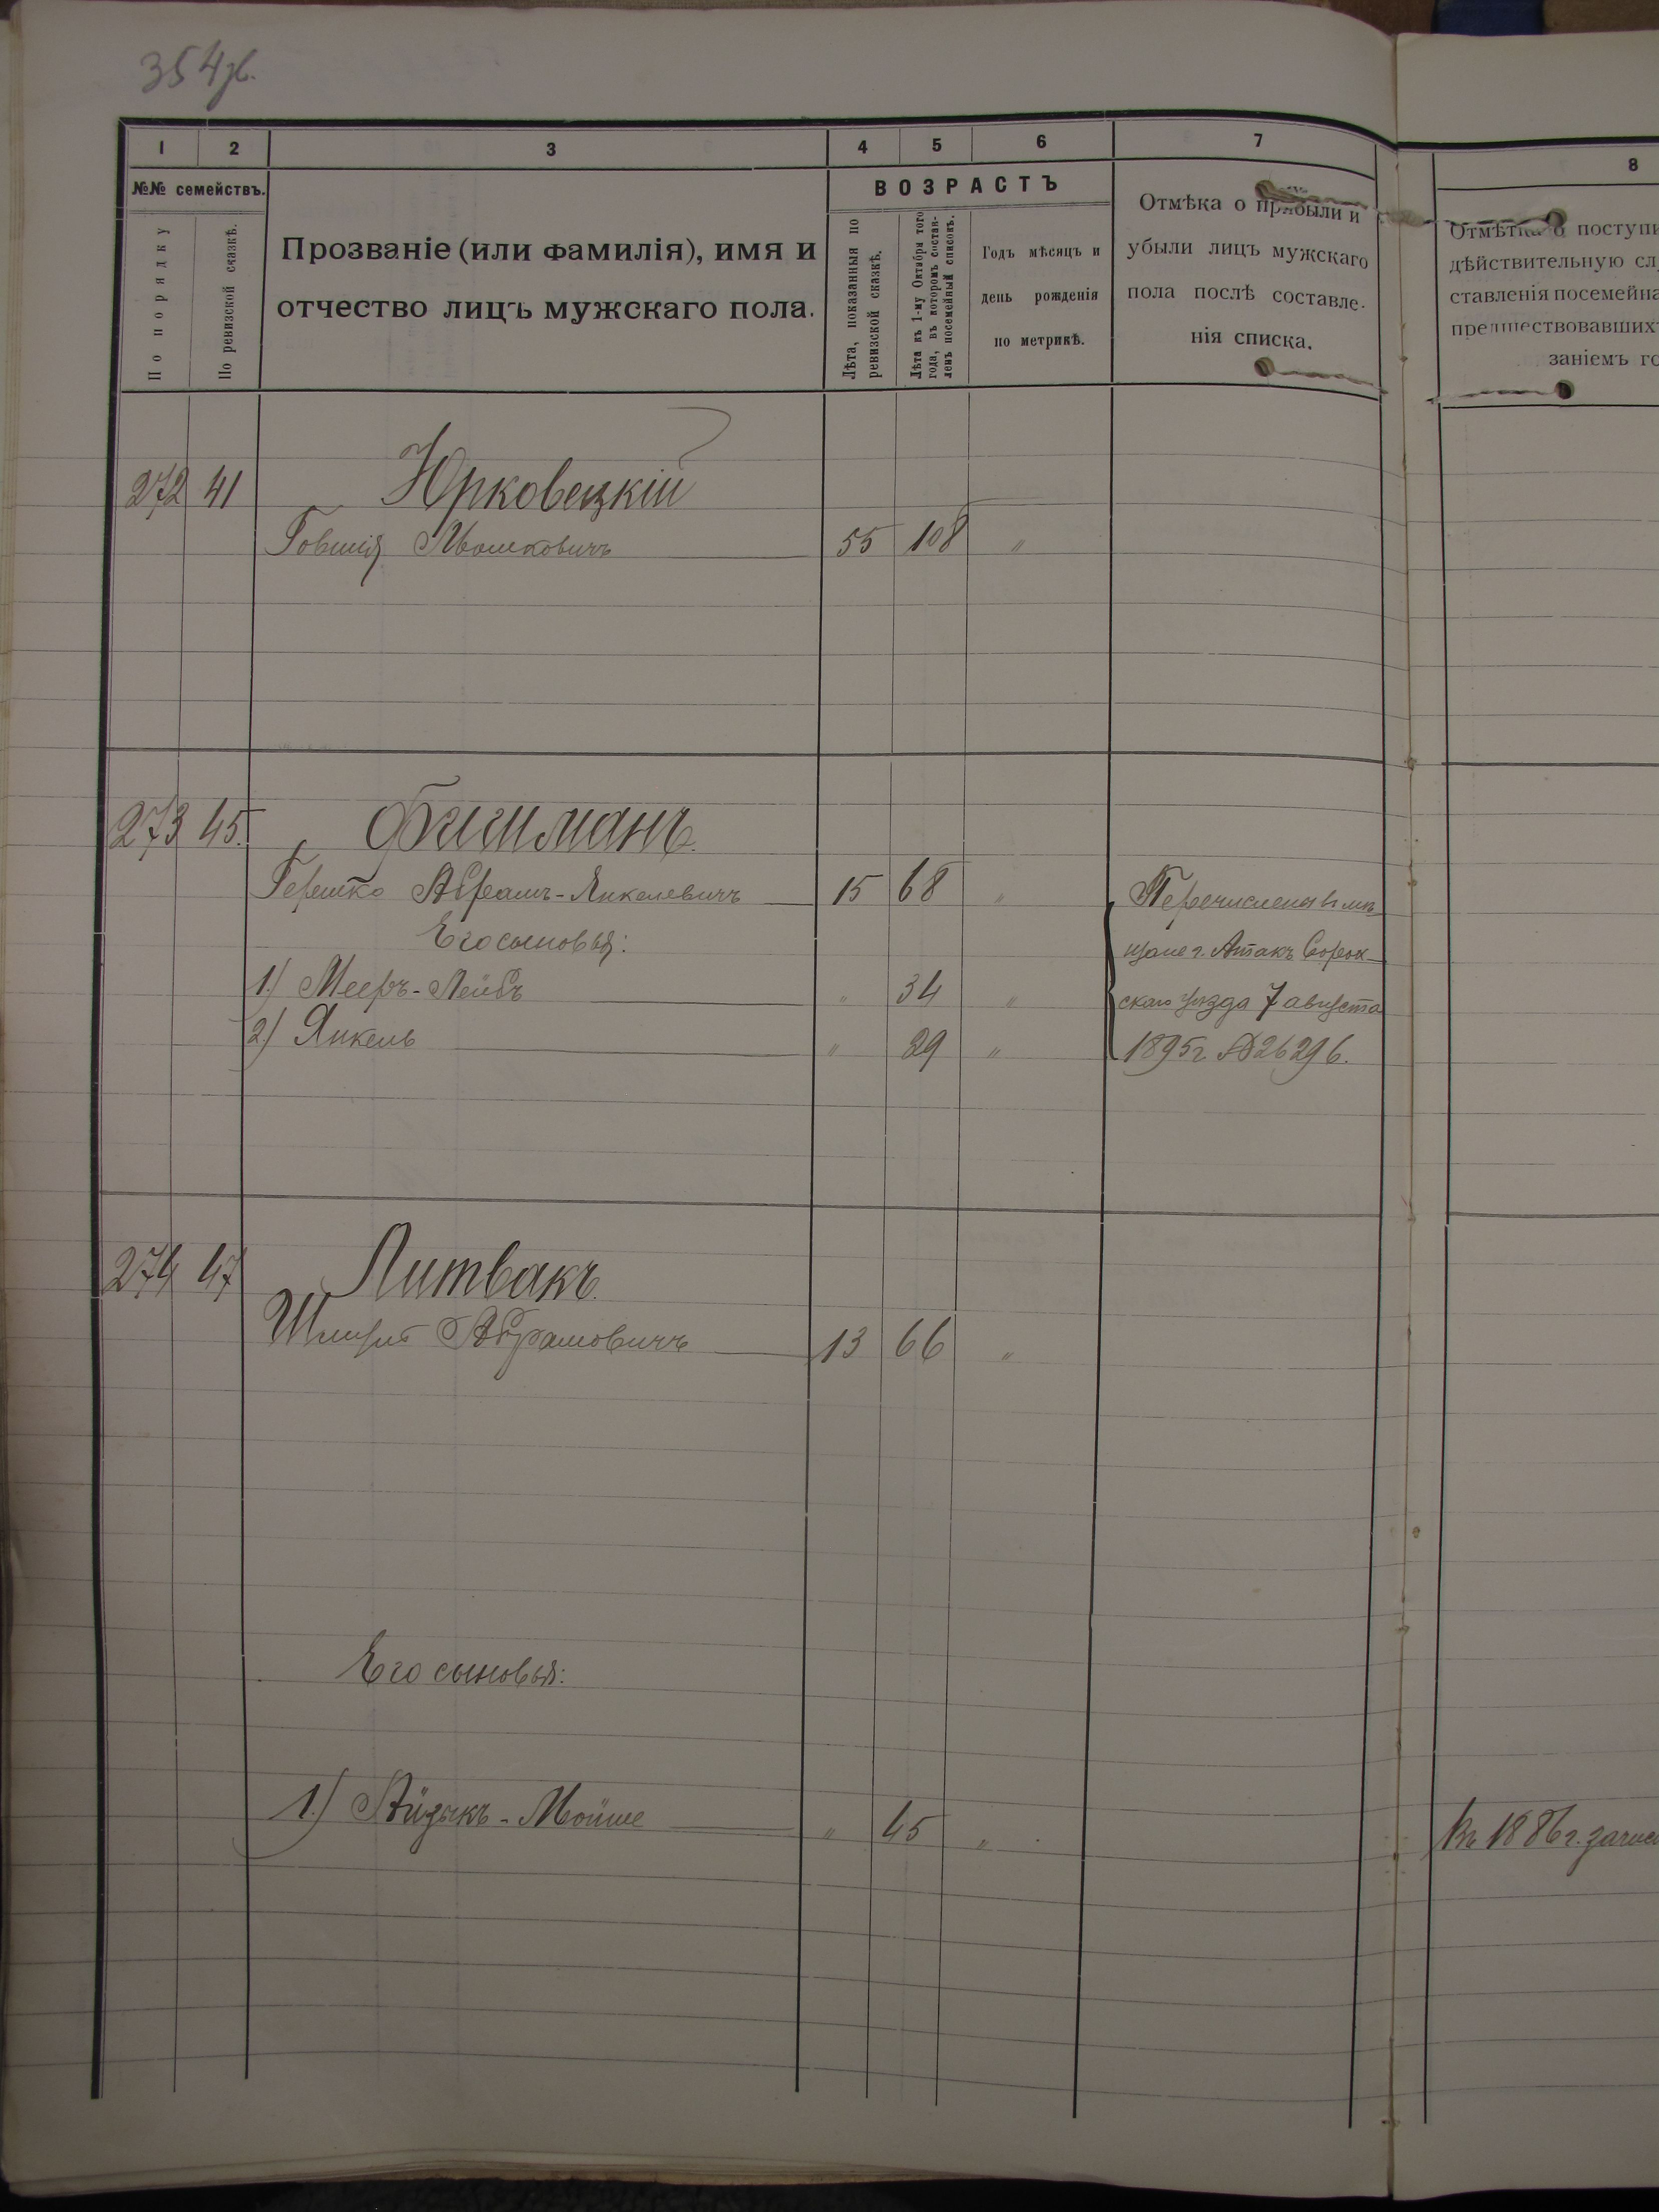 354 зв.
1 2 3 4 5 6 7 8
№№ семействъ.
По порядку
По ревизской сказкѣ.
Прозваніе (или фамилія), имя и
отчество лицъ мужскаго пола.
ВОЗРАСТЪ
Лѣта, показанныя по
ревизской сказкѣ.
Лѣта къ 1-му Октября того
года, въ которомъ состав-
ленъ посемейный списокъ.
Годъ мѣсяцъ и
день рожденія
по метрикѣ.
Отмѣка о прибыли и
убыли лицъ мужскаго
пола послѣ составле-
нія списка.
Отмѣтка о поступи
дѣйствительную сл
ставленія посемейна
предшествовавшихъ
заніемъ го
272 41 Юрковецкій
Говшія Ивошковичъ 55 108 "
273 45.
Гершко Абрамъ-Янкелевичъ 15 68 "
Его сыновья:
1.) Мееръ-Лейбъ " 34 "
2.) Янкель " 29 "
Перечислены въ мѣ-
щане г. Атакъ Сорок-
скаго уѣзда 7 августа
1895 г. № 26296.
274 47 Литвакъ.
Шмуль Абрамовичъ 13 66 "
Его сыновья:
1.) Айзыкъ-Мойше " 45 "
Въ 1886 г. зачис